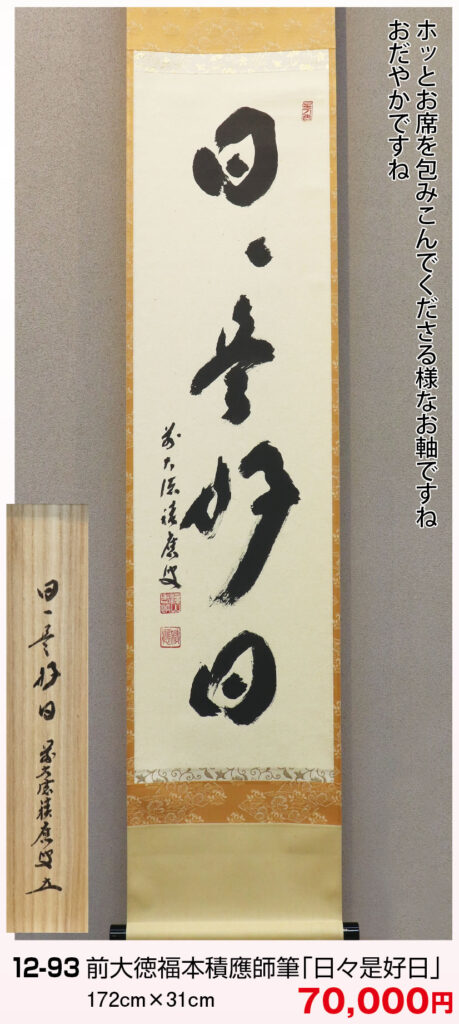 ホッとお席を包みこんでくださる様なお軸ですね
おだやかですね
日々是好日
前大徳積應叟
日々是好日
前大徳積應叟
12-93 前大徳福本積應師筆「日々是好日」
172cm×31cm
70,000円